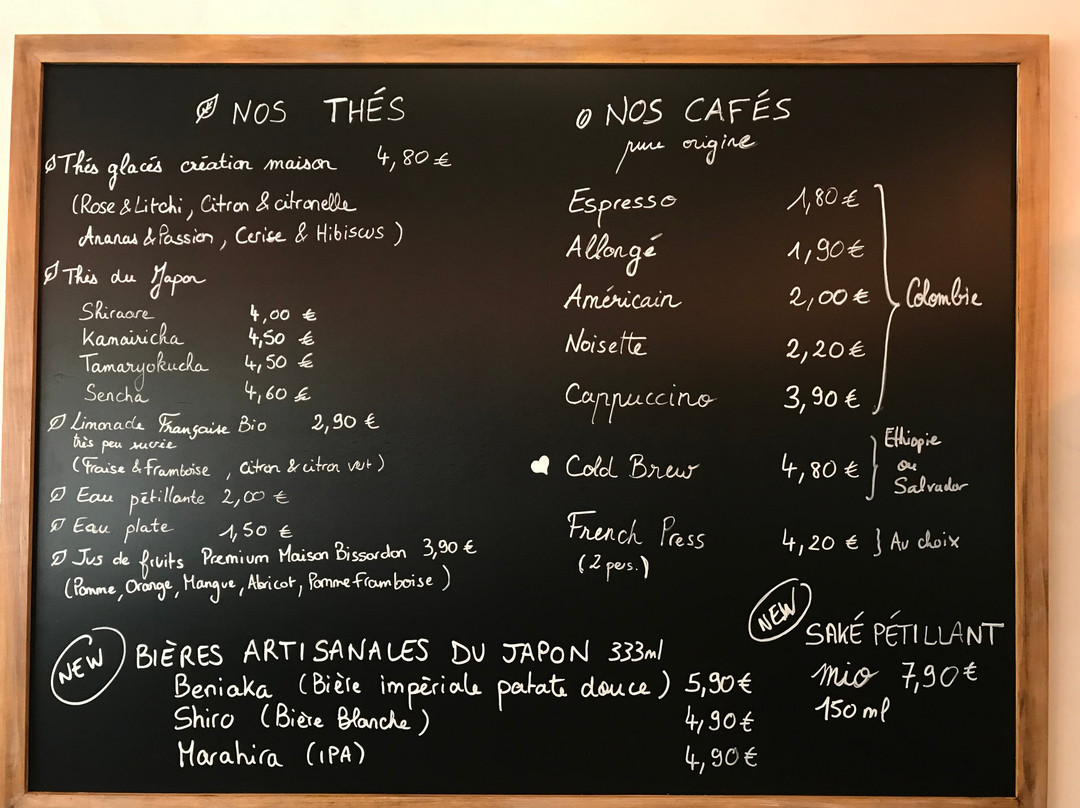 NOS THÉS
Thés glacés création maison 4,80 €
(Rose & Litchi, Citron & citronelle
Ananas & Passion, Cerise & Hibiscus)
Thés du Japon
Shiraore 4,00 €
Kamairicha 4,50 €
Tamaryokucha 4,50 €
Sencha 4,60 €
Limonade Française Bio 2,90 €
très peu sucrée
(Fraise & Framboise, citron & citron vert)
Eau pétillante 2,00 €
Eau plate 1,50 €
Jus de fruits Premium Maison Bissardon 3,90 €
(Pomme, Orange, Mangue, Abricot, Pomme framboise)
NOS CAFÉS
pure origine
Espresso 1,80 €
Allongé 1,90 €
Américain 2,00 €
Colombie
Noisette 2,20 €
Cappuccino 3,90 €
Cold Brew 4,80 €
Ethiopie
ou
Salvador
French Press 4,20 € Au choix
(2 pers.)
NEW
BIÈRES ARTISANALES DU JAPON 333ml
Beniaka (Bière impèriale patate douce) 5,90 €
Shiro (Bière Blanche) 4,90 €
Marahira (IPA) 4,90 €
NEW
SAKÉ PÉTILLANT
mio 7,90 €
150 ml